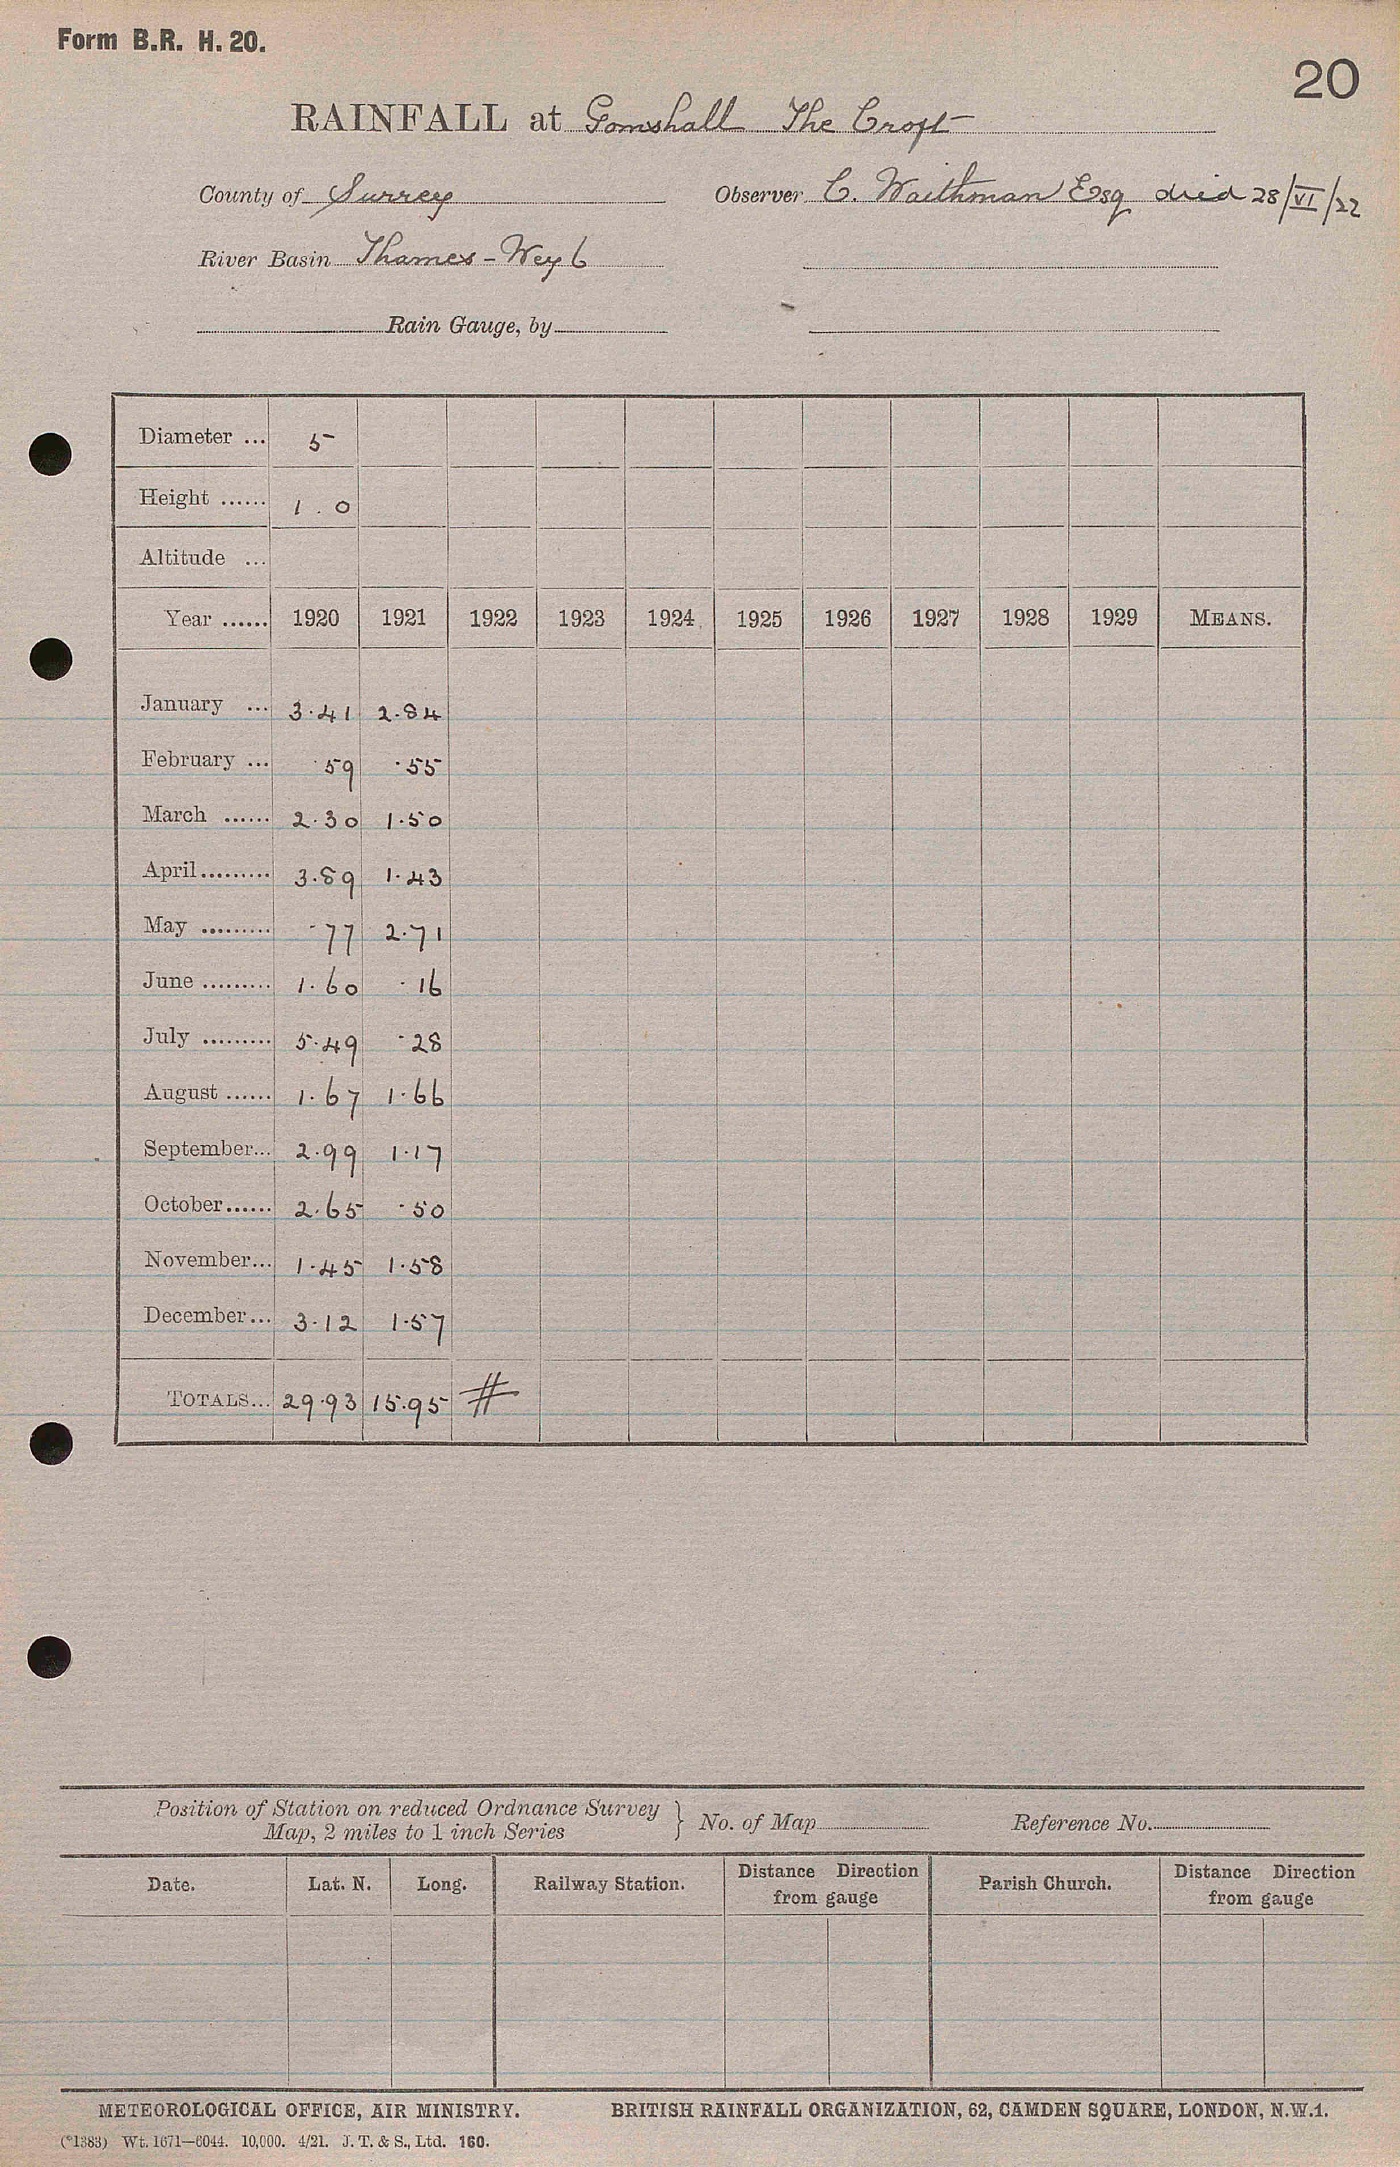 Form B.R. H. 20.
20
RAINFALL at Gomshall The Croft
County of Surrey Observer C. Waithman Esq died 28/VI/22
River Basin Thames - Wey 6
Rain Gauge, by
Diameter ... 5
Height ...... 1 . 0
Altitude ...
Year ...... 1920 1921 1922 1923 1924 1925 1926 1927 1928 1929 MEANS.
January ... 3.41 2.84
February ... .59 .55
March ...... 2.30 1.50
April ......... 3.89 1.43
May ......... .77 2.71
June ......... 1.60 .16
July ......... 5.49 .28
August ...... 1.67 1.66
September... 2.99 1.17
October...... 2.65 .50
November... 1.45 1.58
December... 3.12 1.57
TOTALS... 29.93 15.95 #
Position of Station on reduced Ordnance Survey
Map, 2 miles to 1 inch Series } No. of Map Reference No.
Date. Lat. N. Long. Railway Station. Distance Direction from gauge Parish Church. Distance Direction from gauge
METEOROLOGICAL OFFICE, AIR MINISTRY. BRITISH RAINFALL ORGANIZATION, 62, CAMDEN SQUARE, LONDON, N.W.1.
(*1383) Wt. 1671—6044. 10,000. 4/21. J. T. & S., Ltd. 160.